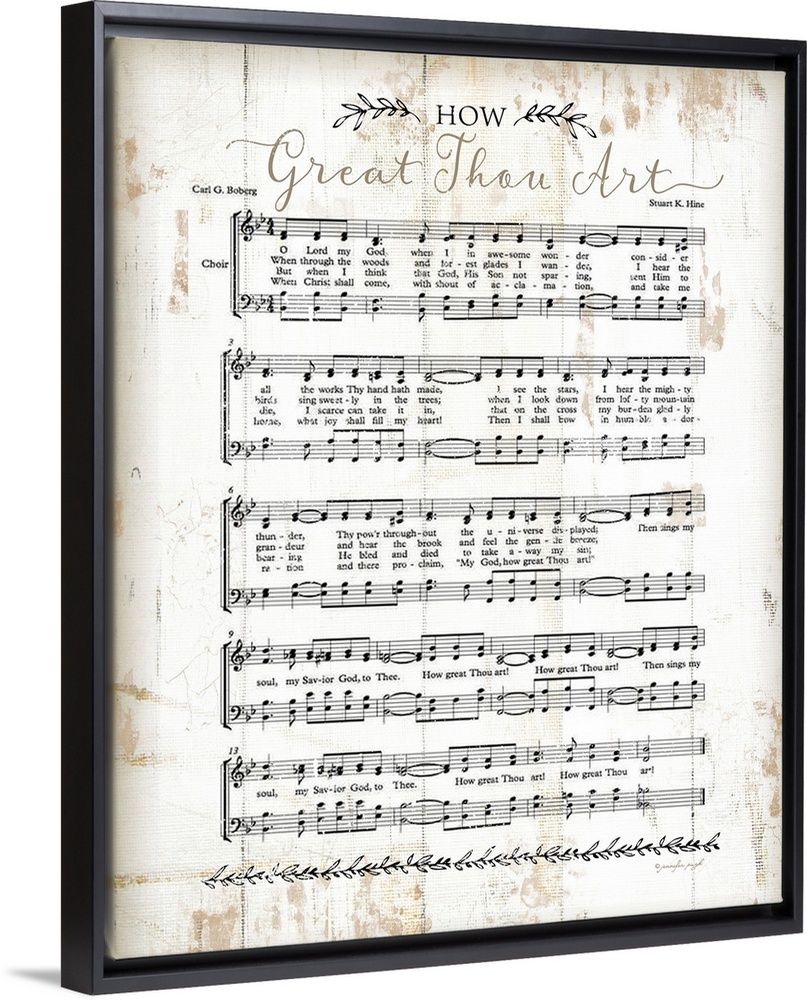 HOW
Great Thou Art
Carl G. Boberg
Stuart K. Hine
Choir
O Lord my God, when I in awe-some won - der con - sid - er
When through the woods and for - est glades I wan - der, I hear the
But when I think that God, His Son not spar - ing, sent Him to
When Christ shall come, with shout of ac - cla - ma - tion, and take me
3
all the works Thy hand hath made, I see the stars, I hear the might-y
birds sing sweet - ly in the trees; when I look down from lof - ty moun-tain
die, I scarce can take it in, that on the cross my bur-den glad-ly
home, what joy shall fill my heart! Then I shall bow in hum-ble a-dor-
6
thun - der, Thy pow'r through-out the u - ni-verse dis-played; Then sings my
gran - deur and hear the brook and feel the gen - tle breeze;
bear - ing He bled and died to take a - way my sin;
ra - tion and there pro - claim, "My God, how great Thou art!"
9
soul, my Sav-ior God, to Thee. How great Thou art! How great Thou art! Then sings my
13
soul, my Sav-ior God, to Thee. How great Thou art! How great Thou art!